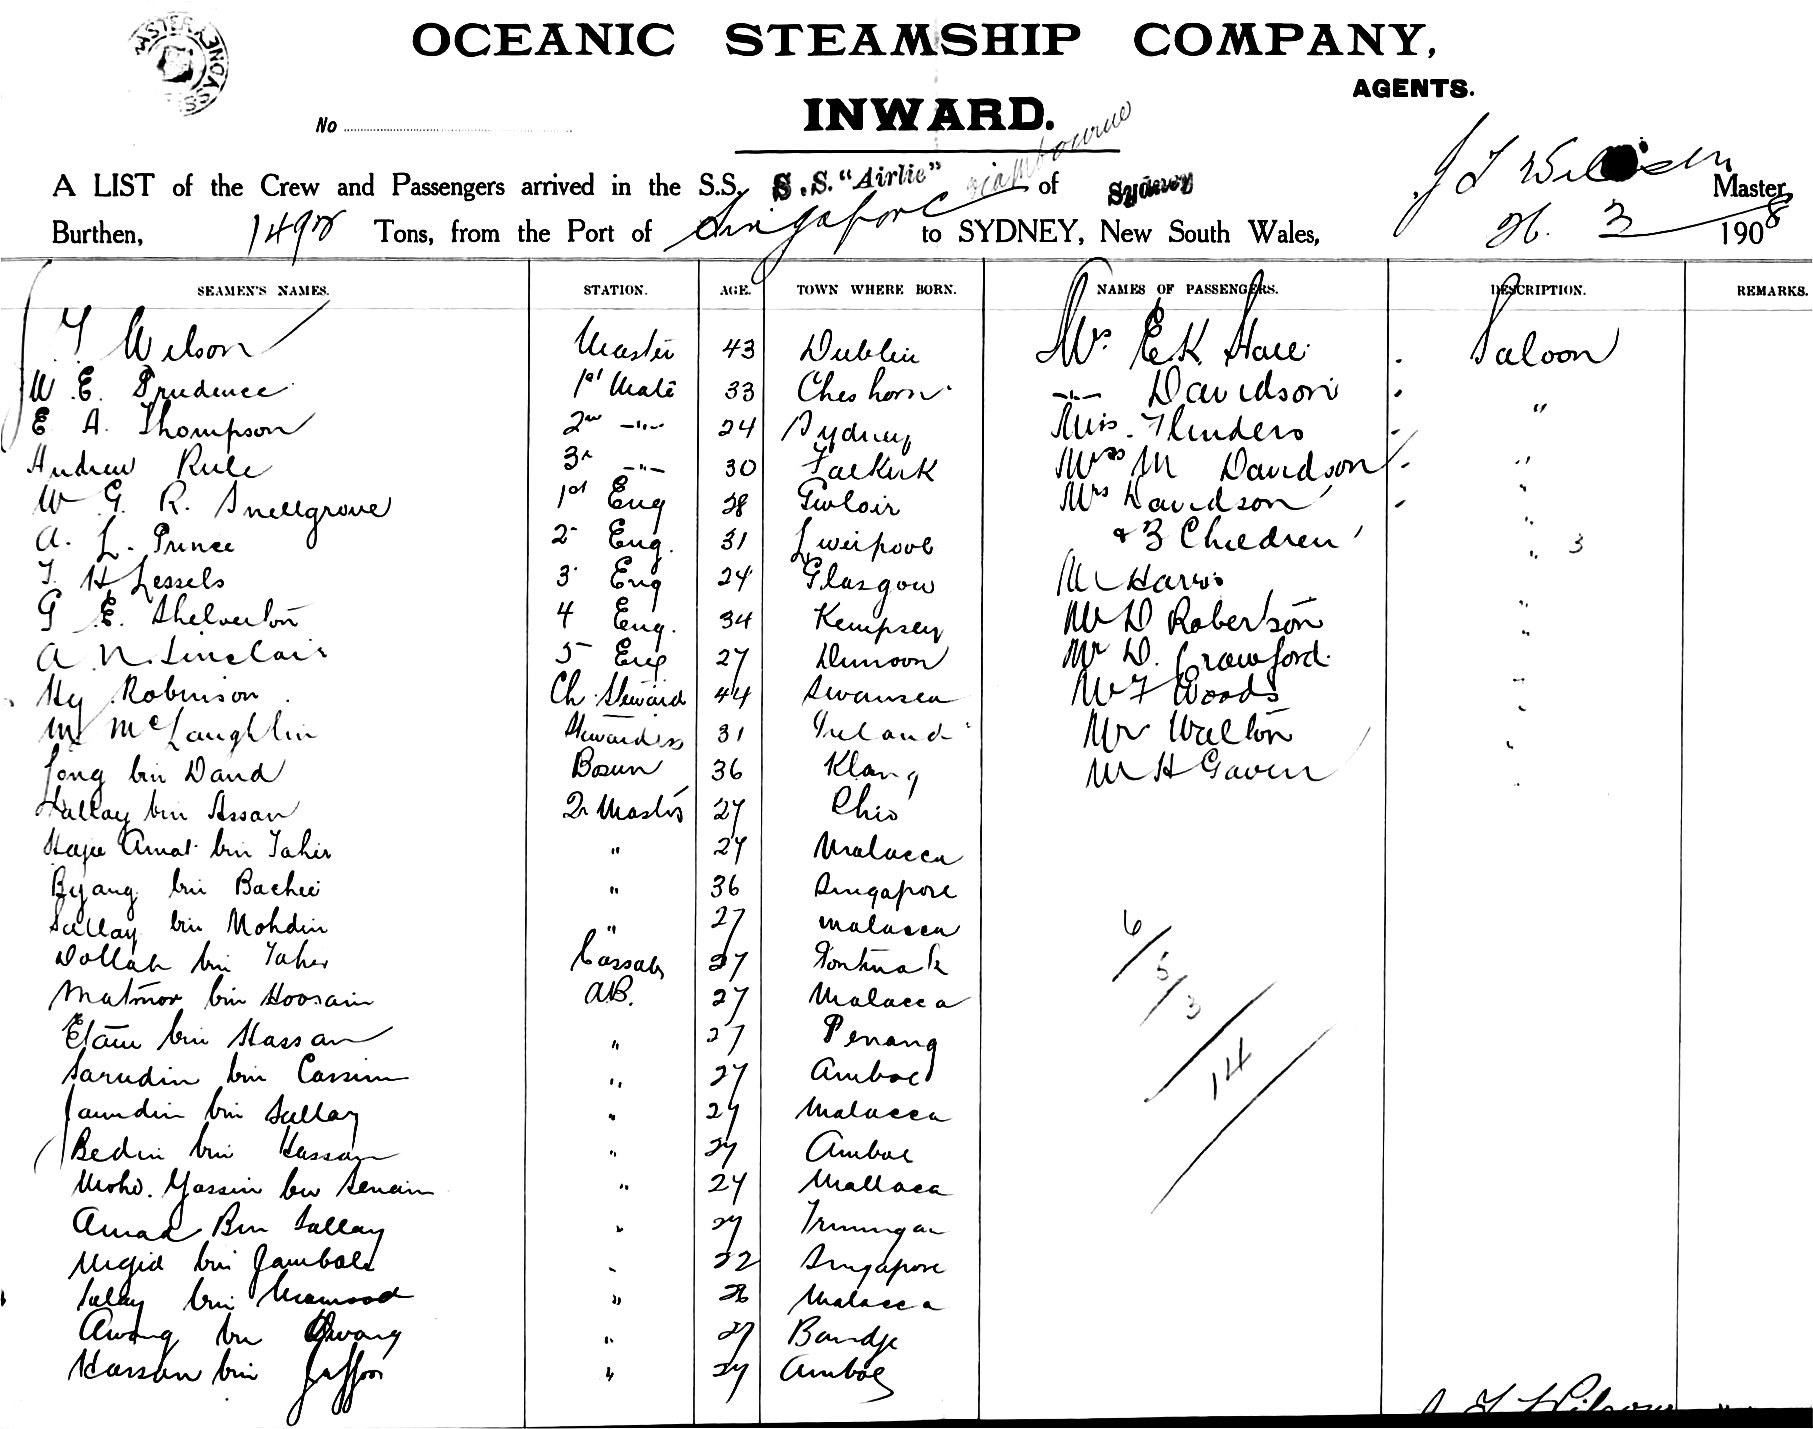 OCEANIC STEAMSHIP COMPANY,
AGENTS.
INWARD.
No
A LIST of the Crew and Passengers arrived in the S.S. S.S. "Airlie" of Sydney J T Wilson Master,
Burthen, 1498 Tons, from the Port of Singapore to SYDNEY, New South Wales, 26. 3 1908
SEAMEN'S NAMES. STATION. AGE. TOWN WHERE BORN. NAMES OF PASSENGERS. DESCRIPTION. REMARKS.
T Wilson Master 43 Dublin Mrs E K Hall Saloon
W. E. Prudence 1st Mate 33 Cheshorn -"- Davidson
E A. Thompson 2nd -"- 24 Sydney Miss Flinders "
Andrew Rule 3r -"- 30 Falkirk Miss M Davidson "
W G. R. Snellgrove 1st Eng 28 Mrs Davidson "
A. L. Prince 2 Eng. 31 Liverpool & 3 Children " 3
T. H Lessels 3 Eng 24 Glasgow Mr Harris "
G E. Shelverton 4 Eng. 34 Kempsey Mr D Robertson "
A. N. Sinclair 5 Eng 27 Dunoon Mr D. Crawford "
Hy Robinson Ch. Steward 44 Swansea Mr F Woods "
M McLaughlin Stewardess 31 Ireland Mr Walton "
Jong bin Daud Bosun 36 Klang Mr H Gaven "
Sallay bin Assan Qr Masters 27 Chio
Haji Amat bin Tahir " 27 Malacca
Byang bin Bachee " 36 Singapore
Sallay bin Mohdin " 27 Malacca
Dollah bin Taher Cassab 27 Pontinak
Matnor bin Hoosain A.B. 27 Malacca
Etam bin Hassan " 27 Penang
Sarudin bin Cassim " 27 Amboe
Jamdin bin Sallay " 27 Malacca
Bedin bin Hassan " 27 Amboe
Mohd. Yassin bin Senain " 24 Mallaca
Amad Bin Sallay " 27
Megid bin Jambole " 22 Singapore
Salay bin Mamood " 26 Malacca
Awang bin Awang " 27
Hassan bin Jaffor " 27 Amboe
6
5
3
14
J T Wilson